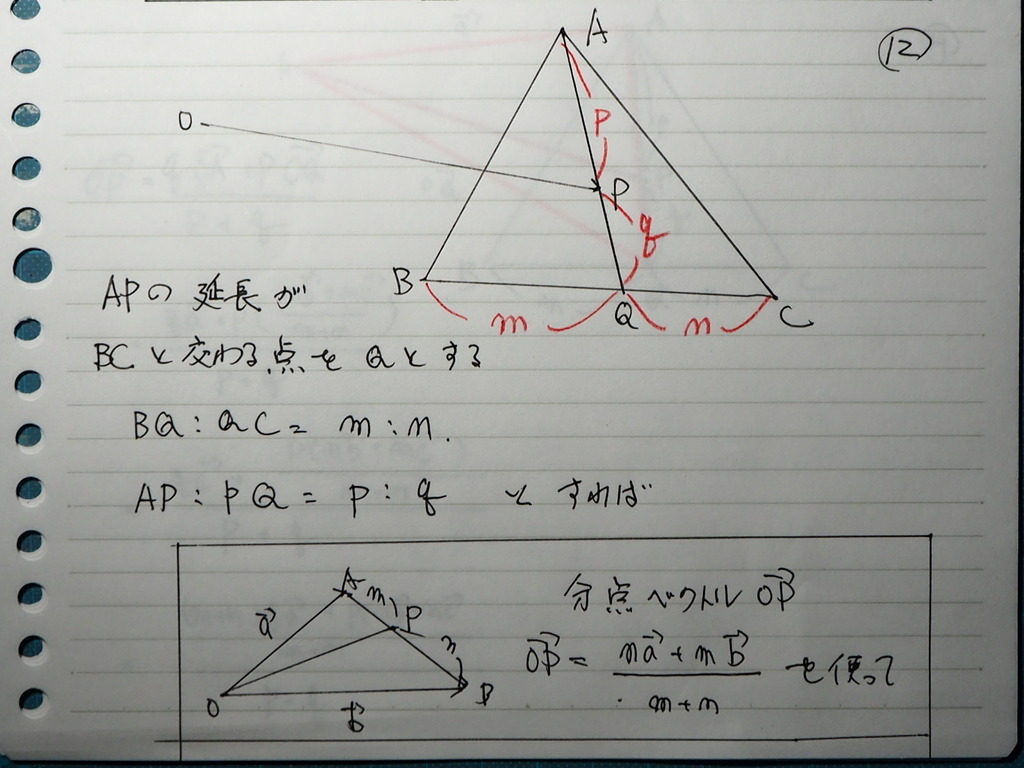 ⑫
A
O
p
P
q
B
Q
C
m
n
APの 延長が
BCと交わる点をQとする
BQ:QC= m:n.
AP:PQ= p:q とすれば
A
m
P
n
a→
O
B
b→
分点ベクトルOP→
OP→ = (na→+mb→)/(m+n) を使って